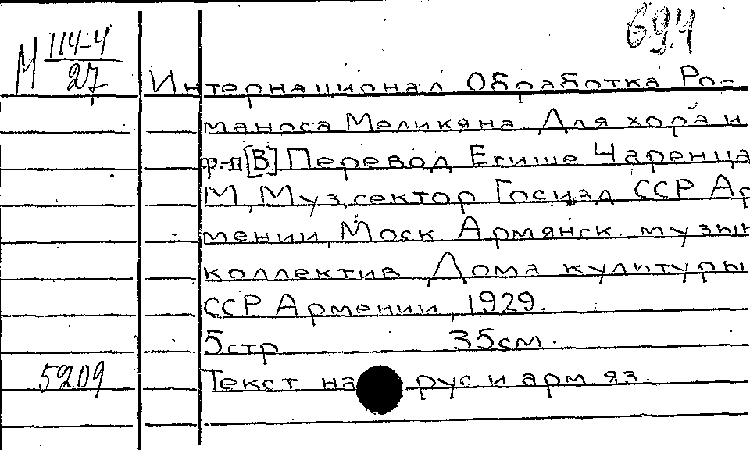 694
М 114-4
27
Интернационал Обработка Ро-
маноса Меликяна Для хора и
ф-п [В] Перевод Егише Чаренца
М, Муз.сектор Госизд ССР Ар
мении, Моск Армянск. музын
коллектив Дома культуры
ССР Армении, 1929.
5стр 35см.
5209
Текст на рус и арм яз.